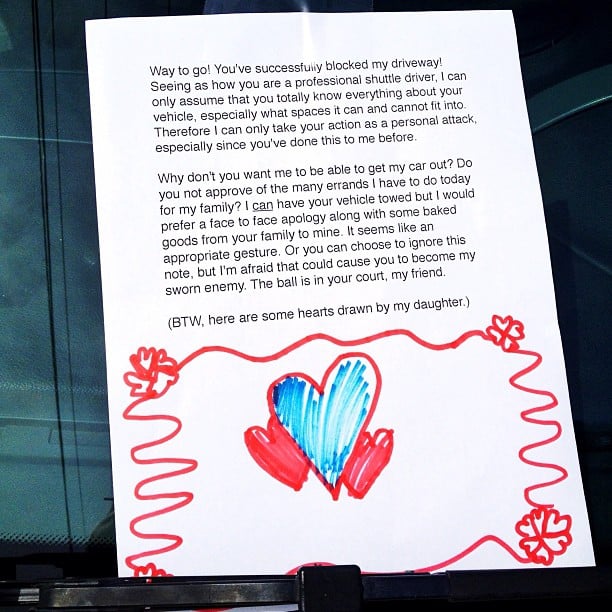 Way to go! You've successfully blocked my driveway!
Seeing as how you are a professional shuttle driver, I can
only assume that you totally know everything about your
vehicle, especially what spaces it can and cannot fit into.
Therefore I can only take your action as a personal attack,
especially since you've done this to me before.
Why don't you want me to be able to get my car out? Do
you not approve of the many errands I have to do today
for my family? I can have your vehicle towed but I would
prefer a face to face apology along with some baked
goods from your family to mine. It seems like an
appropriate gesture. Or you can choose to ignore this
note, but I'm afraid that could cause you to become my
sworn enemy. The ball is in your court, my friend.
(BTW, here are some hearts drawn by my daughter.)